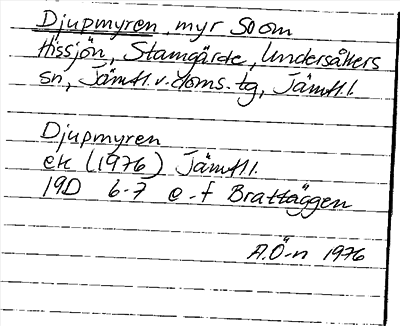 Djupmyren, myr SO om
Hissjön, Stamgärde, Undersåkers
sn, Jämtl. v. doms. tg, Jämtl. l.
Djupmyren
ek (1976) Jämtl. l.
19D 6-7 e-f Brattäggen
A.Ö-n 1976